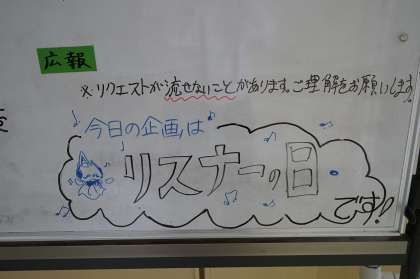 広報
※リクエストが流せないことがあります。ご理解をお願いします
今日の企画は
リスナーの日
です!!